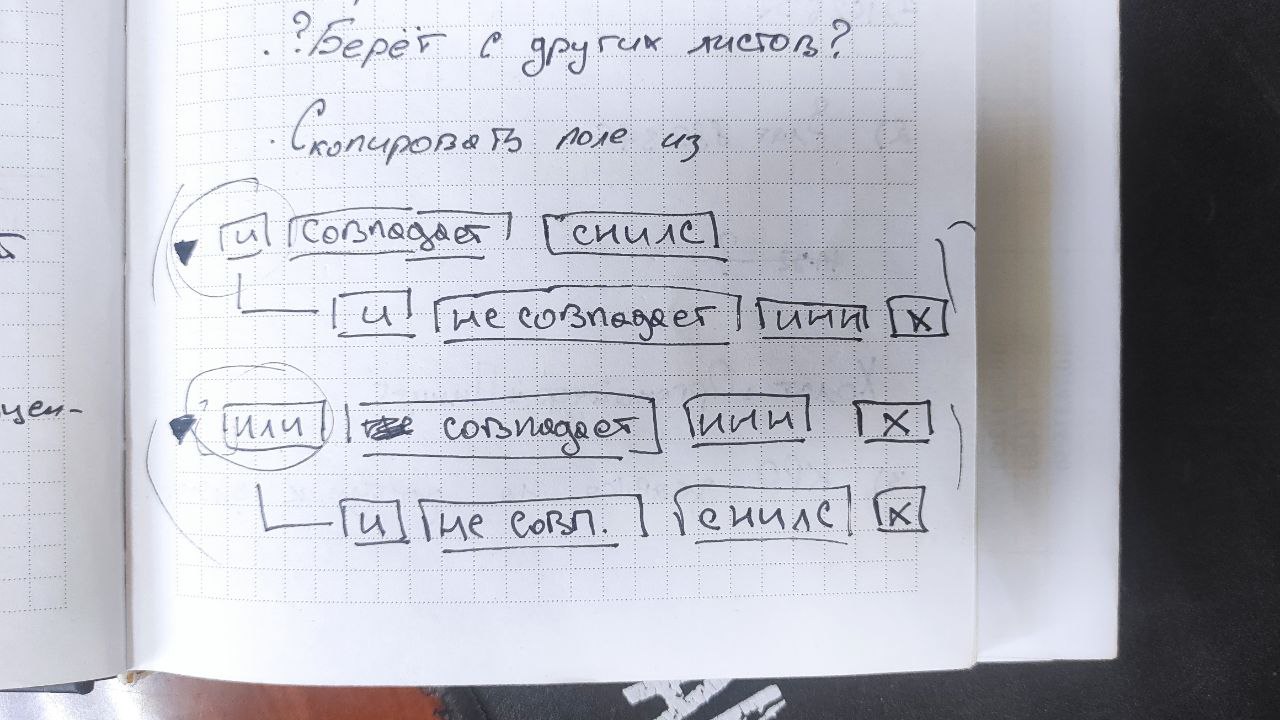 . ?Берёт с других листов?
. Скопировать поле из
▼ и совпадает снилс
и не совпадает инн х
▼ или совпадает инн х
и не совп. снилс х
цен-